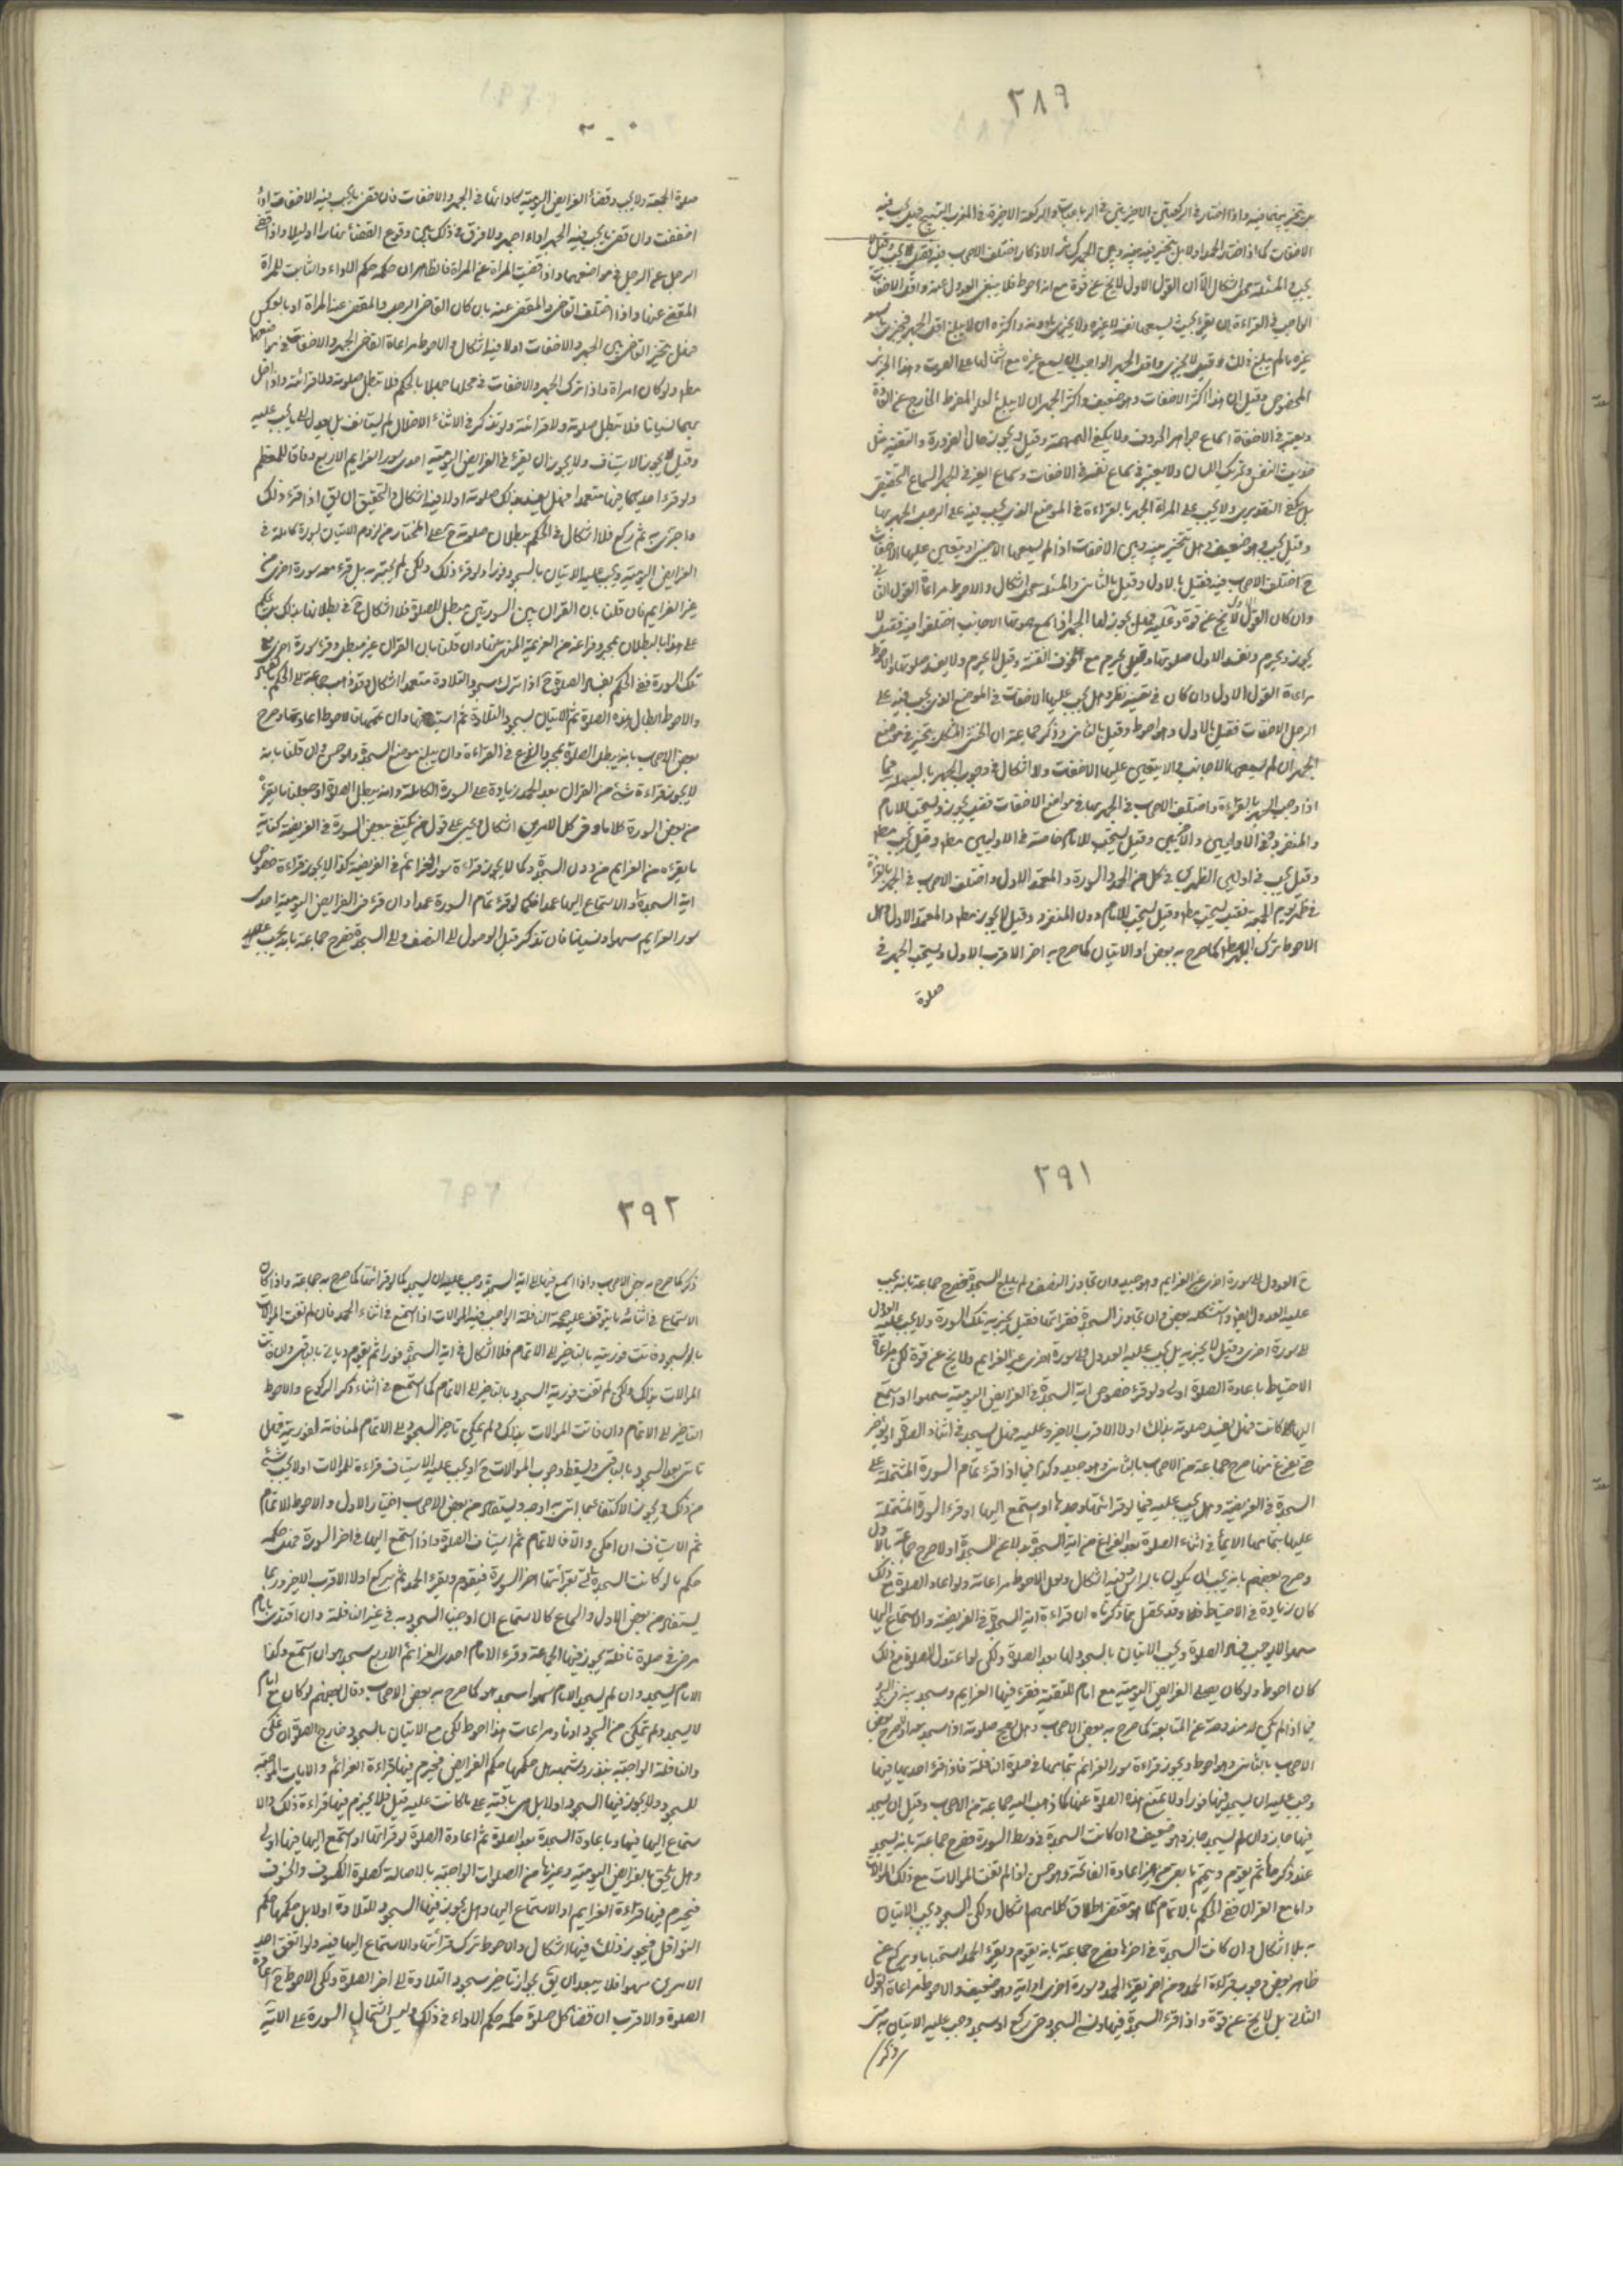 ٢٨٩
الاخفات كما اذا اختار الحمد اولا بل يتخير فيه بينه وبين الجهر كسائر الاذكار اختلف الاصحاب فيه فقيل يجب وقيل لا
يجب والمسئلة محل اشكال الا ان القول الاول لا يخ عن قوة مع انه احوط فلا ينبغي العدول عنه واقل الاخفات
الواجب في القراءة ان يقرء بحيث يسمعها نفسه لا غيره ولا يجزي ما دونه واكثره ان لا يبلغ اقل الجهر فيجزي
غيره ما لم يبلغ ذلك وقيل لا يجزي واقل الجهر الواجب ان يسمع غيره مع اشتمالها على الصوت وهذا الجزء
المخصوص وقيل ان هذا اكثر الاخفات وهو ضعيف واكثر الجهر ان لا يبلغ العلو المفرط الخارج عن العادة
ويعتبر في الاخفاة اسماع جواهر الحروف ولا يكفي الهمهمة وقيل ويجوز حال الضرورة والتقية مثل
حديث النفس وتحريك اللسان ولا يعتبر في سماع نفسه في الاخفات وسماع الغير في الجهر السماع التحقيقي
بل يكفي التقديري ولا يجب على المراة الجهر بالقراءة في الموضع الذي يجب فيه على الرجل الجهر بها
وقيل يجب وهو ضعيف وهل يتخير بينه وبين الاخفات اذا لم يسمعها الاجنبي او يتعين عليها الاخفات
ح اختلف الاصحاب فيه فقيل بالاول وقيل بالثاني والمسئلة محل اشكال والاحوط مراعاة القول الثاني
وان كان القول الاول لا يخ عن قوة وعليه فهل يجوز لها الجهر اذا سمع صوتها الاجانب اختلفوا فيه فقيل لا
يجوز ويحرم وتفسد الاول صلوتها وقيل يحرم مع خوف الفتنة وقيل لا يحرم ولا يفسد صلوتها والاحوط
مراعاة القول الاول وان كان في تعينه نظر وهل يجب عليها الاخفات في الموضع الذي يجب فيه على
الرجل الاخفات فقيل بالاول وهو احوط وقيل بالثاني وذكر جماعة ان الخنثى المشكل يتخير في موضع
الجهر ان لم يسمعها الاجانب والا يتعين عليها الاخفات ولا اشكال في وجوب الجهر بالبسملة فيما
اذا وجب الجهر بالقراءة واختلف الاصحاب في الجهر بها في مواضع الاخفات فقيل يجوز ويستحب للامام
والمنفرد في الاوليين والاخيرتين وقيل يستحب للامام خاصة في الاوليين مطلقا وقيل يجب مطلقا
وقيل يجب في اوليي الظهرين في كل من الحمد والسورة والمعتمد الاول واختلف الاصحاب في الجهر بالقراءة
في ظهر يوم الجمعة فقيل يستحب مطلقا وقيل يستحب للامام دون المنفرد وقيل لا يجوز مطلقا والمعتمد الاول وهل
الاحوط ترك الجهر مطلقا كما صرح به بعض او الاتيان كما صرح به اخر الاقرب الاول ويستحب الجهر في
صلوة
صلوة الجمعة ولا يجب وقضاء الفرائض اليومية كادائها في الجهر والاخفات فان قضى ما يجب فيه الاخفات اداء
اخفت وان قضى ما يجب فيه الجهر اداء اجهر ولا فرق في ذلك بين وقوع القضاء نهارا او ليلا واذا قضى
الرجل عن الرجل في مواضعهما واذا قضت المراة عن المراة فالظاهر ان حكمه حكم الاداء والثابت للمراة
المقضي عنها واذا اختلف القاضي والمقضي عنه بان كان القاضي الرجل والمقضي عنه المراة او بالعكس
فهل يتخير القاضي بين الجهر والاخفات اولا فيه اشكال والاحوط مراعاة القاضي الجهر والاخفات في مواضعهما
مطلقا ولو كان امراة واذا ترك الجهر والاخفات في محلهما جهلا بالحكم فلا تبطل صلوته ولا قرائته واذا اخل
بهما نسيانا فلا تبطل صلوته ولا قرائته ولو تذكر في الاثناء الاخلال لم يستانف بل يعدل الى ما يجب عليه
وقيل يجوز الاستيناف ولا يجوز ان يقرء في الفرائض اليومية احدى سور العزايم الاربع وفاقا للمعظم
ولو قرء احديها فيها متعمدا فهل يفسد بذلك صلوته اولا فيه اشكال والتحقيق ان يق اذا قرء ذلك
واجتزى به ثم ركع فلا اشكال في الحكم ببطلان صلوته ح على المختار من لزوم الاتيان بسورة كاملة في
الفرايض اليومية ويجب عليه الاتيان بالسجود فورا ولو قرء ذلك ولكن لم يجتز به بل قرء معه سورة اخرى من
غير العزايم فان قلنا بان القران بين السورتين مبطل للصلوة فلا اشكال ح في بطلانها بذلك
على هذا بالبطلان بمجرد فراغه من العزيمة المنهي عنها وان قلنا بان القران غير مبطل وقرء سورة اخرى مع
تلك السورة ففي الحكم بفساد الصلوة ح اذا ترك سجود التلاوة متعمدا اشكال وقد ذهب جماعة الى الحكم بفسادها
والاحوط ابطال هذه الصلوة ثم الاتيان بسجود التلاوة ثم استينافها وان تممها فالاحوط اعادتها وصرح
بعض الاصحاب بانه يبطل الصلوة بمجرد الشروع في القراءة وان يبلغ موضع السجدة وهو حسن ان قلنا بانه
لا يجوز قراءة شئ من القران بعد الحمد زيادة على السورة الكاملة وانه يبطل الصلوة او جعلنا ما يقرؤه
من بعض السورة كلاما وفي كل الامرين اشكال نعم على قول من يكتفي ببعض السورة في الفريضة كفاية
ما يقرؤه من العزايم من دون السجدة وكما لا يجوز قراءة سور العزائم في الفريضة كذا لا يجوز قراءة خصوص
اية السجدة او الاستماع اليها عمدا فكما لو قرء تمام السورة عمدا وان قرء في الفرايض اليومية احدى
سور العزايم سهوا ونسيانا فان تذكر قبل الوصول الى النصف والى السجدة فصرح جماعة بانه يجب عليه
٢٩١
ح العدول الى سورة اخرى غير العزايم وهو جيد وان تجاوز النصف ولم يبلغ السجدة فصرح جماعة بانه يجب
عليه العدول ايضا واستشكله بعض وان تجاوز السجدة فقرائها فقيل يجزيه تلك السورة ولا يجب عليه العدول
الى سورة اخرى وقيل لا يجزيه بل يجب عليه العدول الى سورة اخرى غير العزايم ولا يخ عن قوة لكن مراعاة
الاحتياط باعادة الصلوة اولى ولو قرء خصوص اية السجدة في الفرايض اليومية سهوا او استمع
اليها كانت فهل يفسد صلوته بذلك اولا الاقرب الاخير وعليه فهل يسجد في اثناء الصلوة او يؤخر
حتى يفرغ منها صرح جماعة من الاصحاب بالثاني وهو جيد وكذا فيما اذا قرء تمام السورة المشتملة على
السجدة في الفريضة وهل يجب عليه فيما لو قرائتها وحدها او استمع اليها او قرء السورة المشتملة
عليها بتمامها الايماء في اثناء الصلوة بعد الفراغ من اية السجدة بدلا عن السجدة اولا صرح جماعة بالاول
وصرح بعضهم بانه يجب ان يكون بالراس فيه اشكال ولعل الاحوط مراعاته ولو اعاد الصلوة مع ذلك
كان زيادة في الاحتياط وقد تحصل مما ذكرناه ان قراءة اية السجدة في الفريضة والاستماع اليها
سهوا لا يوجب فساد الصلوة ويجب الاتيان بالسجود لها بعد الصلوة ولكن لو اعيد الصلوة مع ذلك
كان احوط ولو كان يصلي الفرائض اليومية مع امام للتقية فقرء فيها العزايم وسجد
فيما اذا لم يكن له مندوحة عن المتابعة كما صرح به بعض الاصحاب وهل يصح صلوته اذا سجد صرح بعض
الاصحاب بالثاني وهو احوط ويجوز قراءة سور العزائم بتمامها في صلوة النافلة فاذا قرء احديها فيها
وجب عليه ان يسجد فيها فورا ولا تمنع هذه الصلوة عنها كما ذهب اليه جماعة من الاصحاب وقيل ان يسجد
فيها جاز وان لم يسجد جاز وهو ضعيف وان كانت السجدة في وسط السورة فصرح جماعة بانه يسجد
عند ذكرها ثم يقوم ويتم ما بقي من غير اعادة الفاتحة وهو حسن اذا لم تفت الموالات مع ذلك
واما مع الفوات ففي الحكم بالاتمام كما هو مقتضى اطلاق كلامهم اشكال ولكن السجود يجب الاتيان
به بلا اشكال وان كانت السجدة في اخرها فصرح جماعة بانه يقوم ويقرء الحمد استحبابا ويركع عن
ظاهر بعض وجوب قراءة الحمد وعن اخر يقرء الحمد وسورة اخرى او اية وهو ضعيف والاحوط مراعاة القول
الثاني بل لا يخ عن قوة واذا قرء السجدة فيها ونسى السجود حتى ركع او سجد وجب عليه الاتيان به متى
ذكر
٢٩٢
ذكر كما صرح به بعض الاصحاب واذا استمع فيها الى اية السجدة وجب عليه ان يسجد كما لو قرائتها كما صرح به جماعة واذا كان
الاستماع في اثنائه ما يتوقف عليه صحة النافلة الواجب فيه الموالات اذا استمع في اثناء الحمد فان لم تفت الموالات
بالسجود وفاتت فوريته بالتاخير الى الاتمام فلا اشكال في اية السجدة فورا ثم يقوم وياتي بالباقي وان فاتت
الموالات بذلك ولكن لم تفت فورية السجود بالتاخير الى الاتمام كما استمع في اثناء ذكر الركوع والاحوط
التاخير الى الاتمام وان فاتت الموالات بذلك ولم يمكن تاخير السجود الى الاتمام لمنافاته لفوريته فهل
ياتي بعد السجود بالباقي ويسقط وجوب الموالات ح او يجب عليه الاستيناف قراءة للموالات اولا يجب شئ
من ذلك ويجوز الاكتفاء بما اتى به اوجه ويستفاد من بعض الاصحاب اختيار الاول والاحوط الاتمام
ثم الاستيناف ان امكن والا فالاتمام ثم استيناف الصلوة واذا استمع اليها في اخر السورة فهل حكمه
حكم ما لو كانت السجدة التي يقرائتها اخر السورة فيقوم ويقرء الحمد ثم يركع اولا الاقرب الاخير وربما
يستفاد من بعض الاول والسماع كالاستماع ان اوجبنا السجود به في غير النافلة وان اقتدى بامام
مرضى في صلوة نافلة يجوز فيها الجماعة وقرء الامام احدى العزائم الاربع سجد هو ان استمع وكذا
الامام يسجد وان لم يسجد الامام سهوا سجد هو كما صرح به بعض الاصحاب وقال بعضهم لو كان مع امام
لا يسجد ولم يتمكن من السجود اومأ ومراعات هذا احوط لكن مع الاتيان بالسجود خارج الصلوة ان تمكن
والنافلة الواجبة بنذر وشبهه هل حكمها حكم الفرائض فيحرم فيها قراءة العزائم والايات الموجبة
للسجود ولا يجوز فيها السجود اولا بل هي باقية على ما كانت عليه قيل فلا يحرم فيها قراءة ذلك والا
ستماع اليها فيها وباعادة السجدة بعد الصلوة ثم اعادة الصلوة لو قرائتها او استمع اليها فيها اولى
وهل يلحق بالفرايض اليومية وغيرها من الصلوات الواجبة بالاصالة كصلوة الكسوف والخسوف
فيحرم فيها قراءة العزايم او الاستماع اليها وهل يجوز فيها السجود للتلاوة اولا بل حكمها حكم
النوافل فيجوز ذلك فيها اشكال والاحوط ترك قرائتها والاستماع اليها فيه ولو اتفق احد
الامرين سهوا فلا يبعد ان يق بجواز تاخير سجود التلاوة الى اخر الصلوة ولكن الاحوط ح اعادة
الصلوة والاقرب ان قضاء كل صلوة حكمه حكم الاداء في ذلك وليس اشتمال السورة على الاية